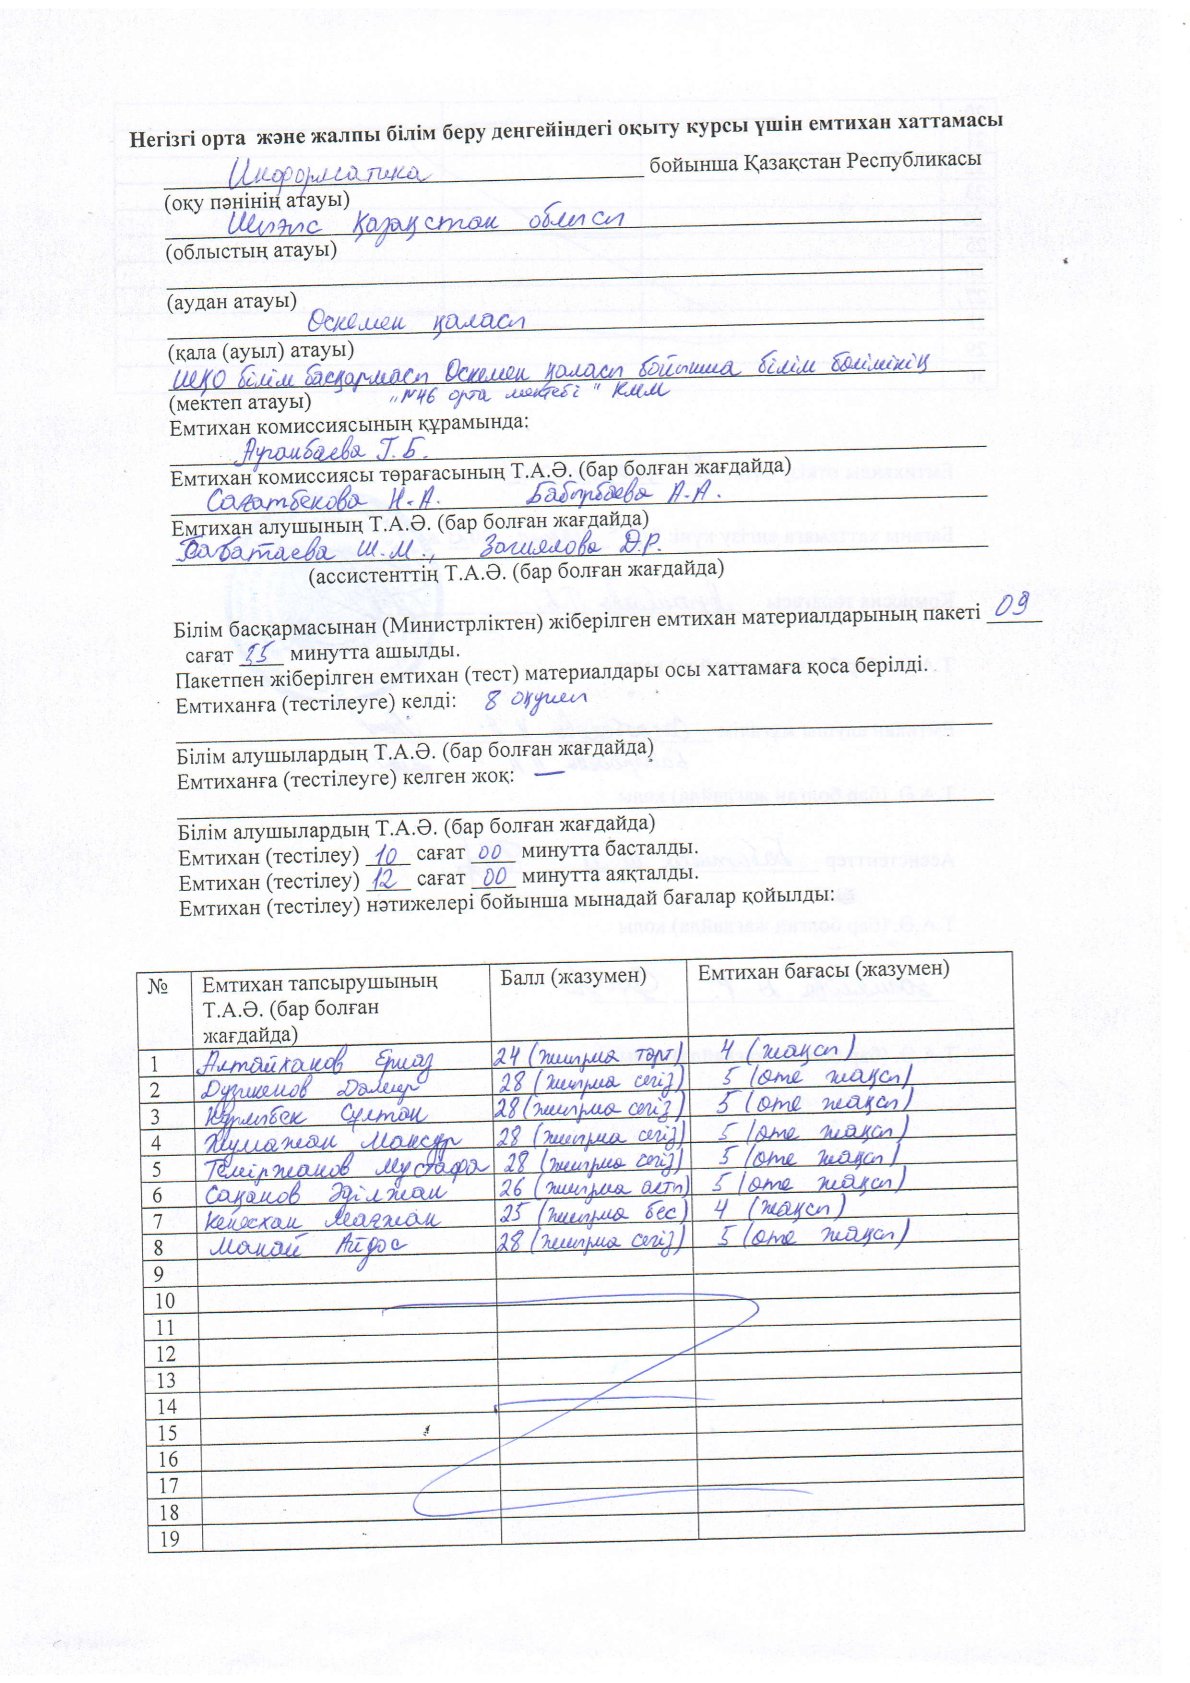 Негізгі орта және жалпы білім беру деңгейіндегі оқыту курсы үшін емтихан хаттамасы
Информатика бойынша Қазақстан Республикасы
(оқу пәнінің атауы)
Шығыс Қазақстан облысы
(облыстың атауы)
(аудан атауы)
Өскемен қаласы
(қала (ауыл) атауы)
ШҚО білім басқармасы Өскемен қаласы бойынша білім бөлімінің
(мектеп атауы) "№46 орта мектебі" КММ
Емтихан комиссиясының құрамында:
Ауганбаева Г.Б.
Емтихан комиссиясы төрағасының Т.А.Ә. (бар болған жағдайда)
Сағатбекова Н.А. Бабырбаева А.А.
Емтихан алушының Т.А.Ә. (бар болған жағдайда)
Бабатаева Ш.М., Загиялова Д.Р.
(ассистенттің Т.А.Ә. (бар болған жағдайда)
Білім басқармасынан (Министрліктен) жіберілген емтихан материалдарының пакеті 09
сағат 35 минутта ашылды.
Пакетпен жіберілген емтихан (тест) материалдары осы хаттамаға қоса берілді.
Емтиханға (тестілеуге) келді: 8 оқушы
Білім алушылардың Т.А.Ә. (бар болған жағдайда)
Емтиханға (тестілеуге) келген жоқ: —
Білім алушылардың Т.А.Ә. (бар болған жағдайда)
Емтихан (тестілеу) 10 сағат 00 минутта басталды.
Емтихан (тестілеу) 12 сағат 00 минутта аяқталды.
Емтихан (тестілеу) нәтижелері бойынша мынадай бағалар қойылды:
№ Емтихан тапсырушының Балл (жазумен) Емтихан бағасы (жазумен)
Т.А.Ә. (бар болған
жағдайда)
1 Алтайханов Ерназ 24 (жиырма төрт) 4 (жақсы)
2 Дузикенов Дамир 28 (жиырма сегіз) 5 (өте жақсы)
3 Нұрлыбек Сұлтан 28 (жиырма сегіз) 5 (өте жақсы)
4 Жумажан Мансұр 28 (жиырма сегіз) 5 (өте жақсы)
5 Теміржанов Мустафа 28 (жиырма сегіз) 5 (өте жақсы)
6 Сақанов Әділжан 26 (жиырма алты) 5 (өте жақсы)
7 Кеңесхан Мағжан 25 (жиырма бес) 4 (жақсы)
8 Манай Айдос 28 (жиырма сегіз) 5 (өте жақсы)
9
10
11
12
13
14
15
16
17
18
19